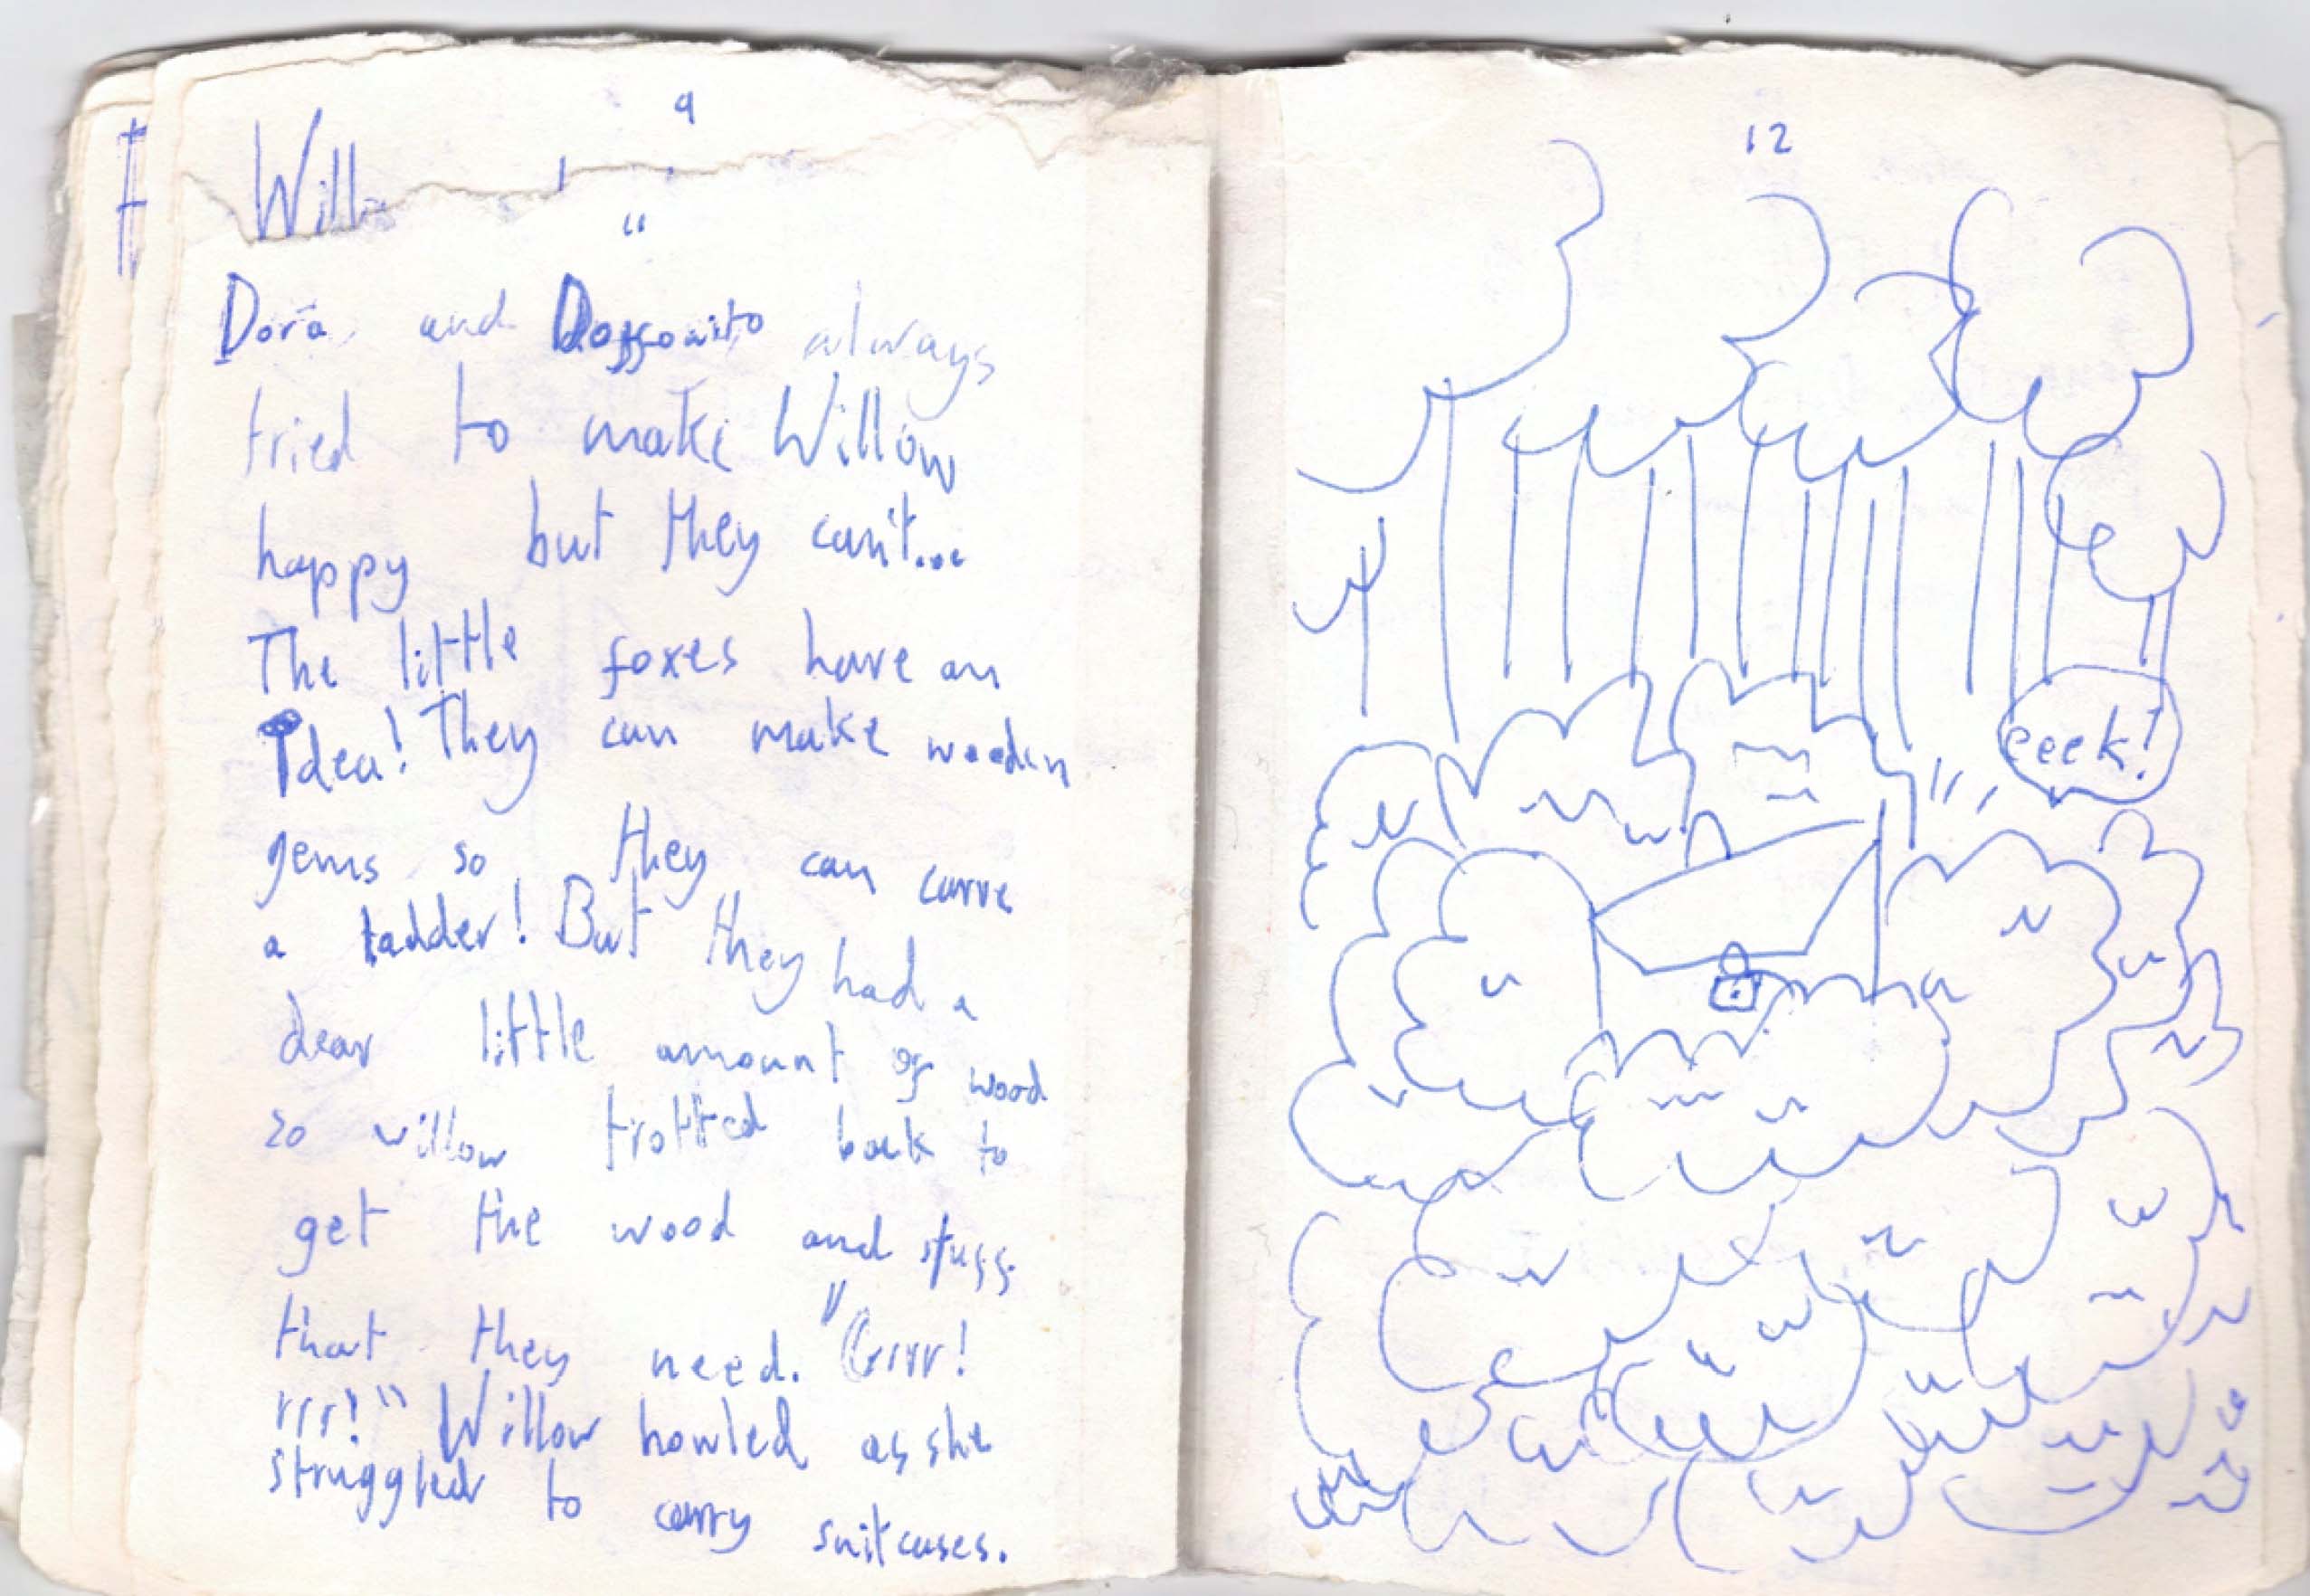 9
Will
11
Dora and Doffowito always
tried to make Willow
happy but they can't...
The little foxes have an
Idea! They can make wooden
gems so they can carve
a ladder! But they had a
dear little amount of wood
so willow trotted back to
get the wood and stuff
that they need. "Grrr!
rrr!" Willow howled as she
struggled to carry suitcases.
12
eeek!